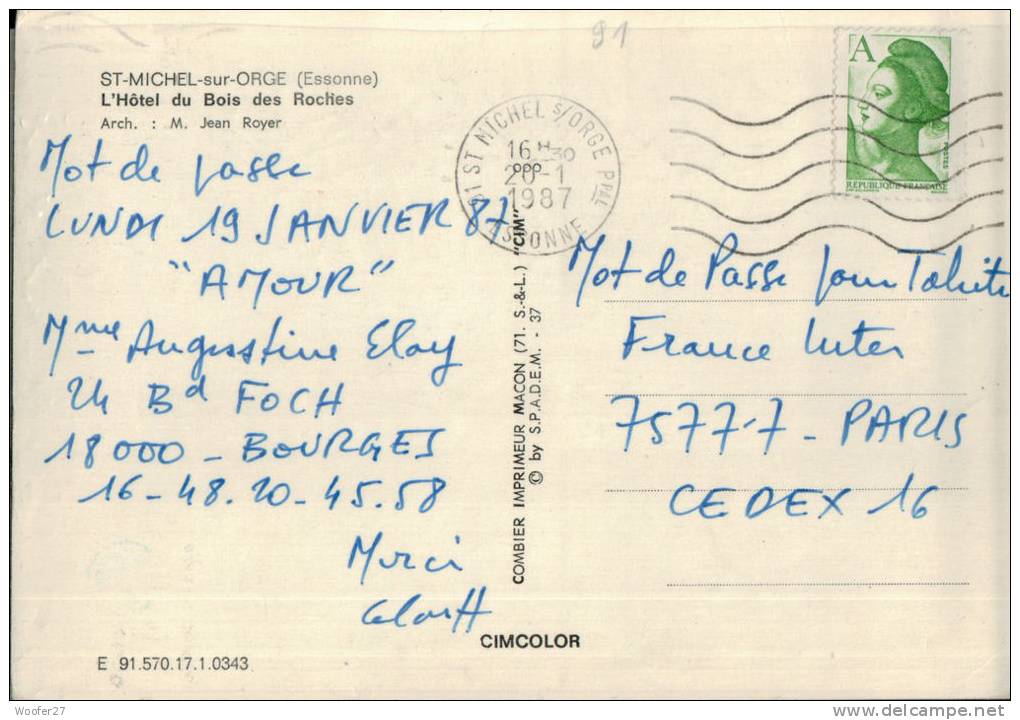 91
ST-MICHEL-sur-ORGE (Essonne)
L'Hôtel du Bois des Roches
Arch. : M. Jean Royer
Mot de passe
LUNDI 19 JANVIER 87
"AMOUR"
Mme Augustine Eloy
24 Bd FOCH
18000 - BOURGES
16-48.20-45.58
Merci
E 91.570.17.1.0343
91 ST MICHEL S/ORGE PPAL
16 H 30
20-1
1987
ESSONNE
COMBIER IMPRIMEUR MACON (71. S.-&-L.) "CIM"
© by S.P.A.D.E.M. - 37
CIMCOLOR
A
POSTES
REPUBLIQUE FRANÇAISE
Mot de Passe pour Tahiti
France Inter
75777 - PARIS
CEDEX 16
Woofer27
delcampe.net